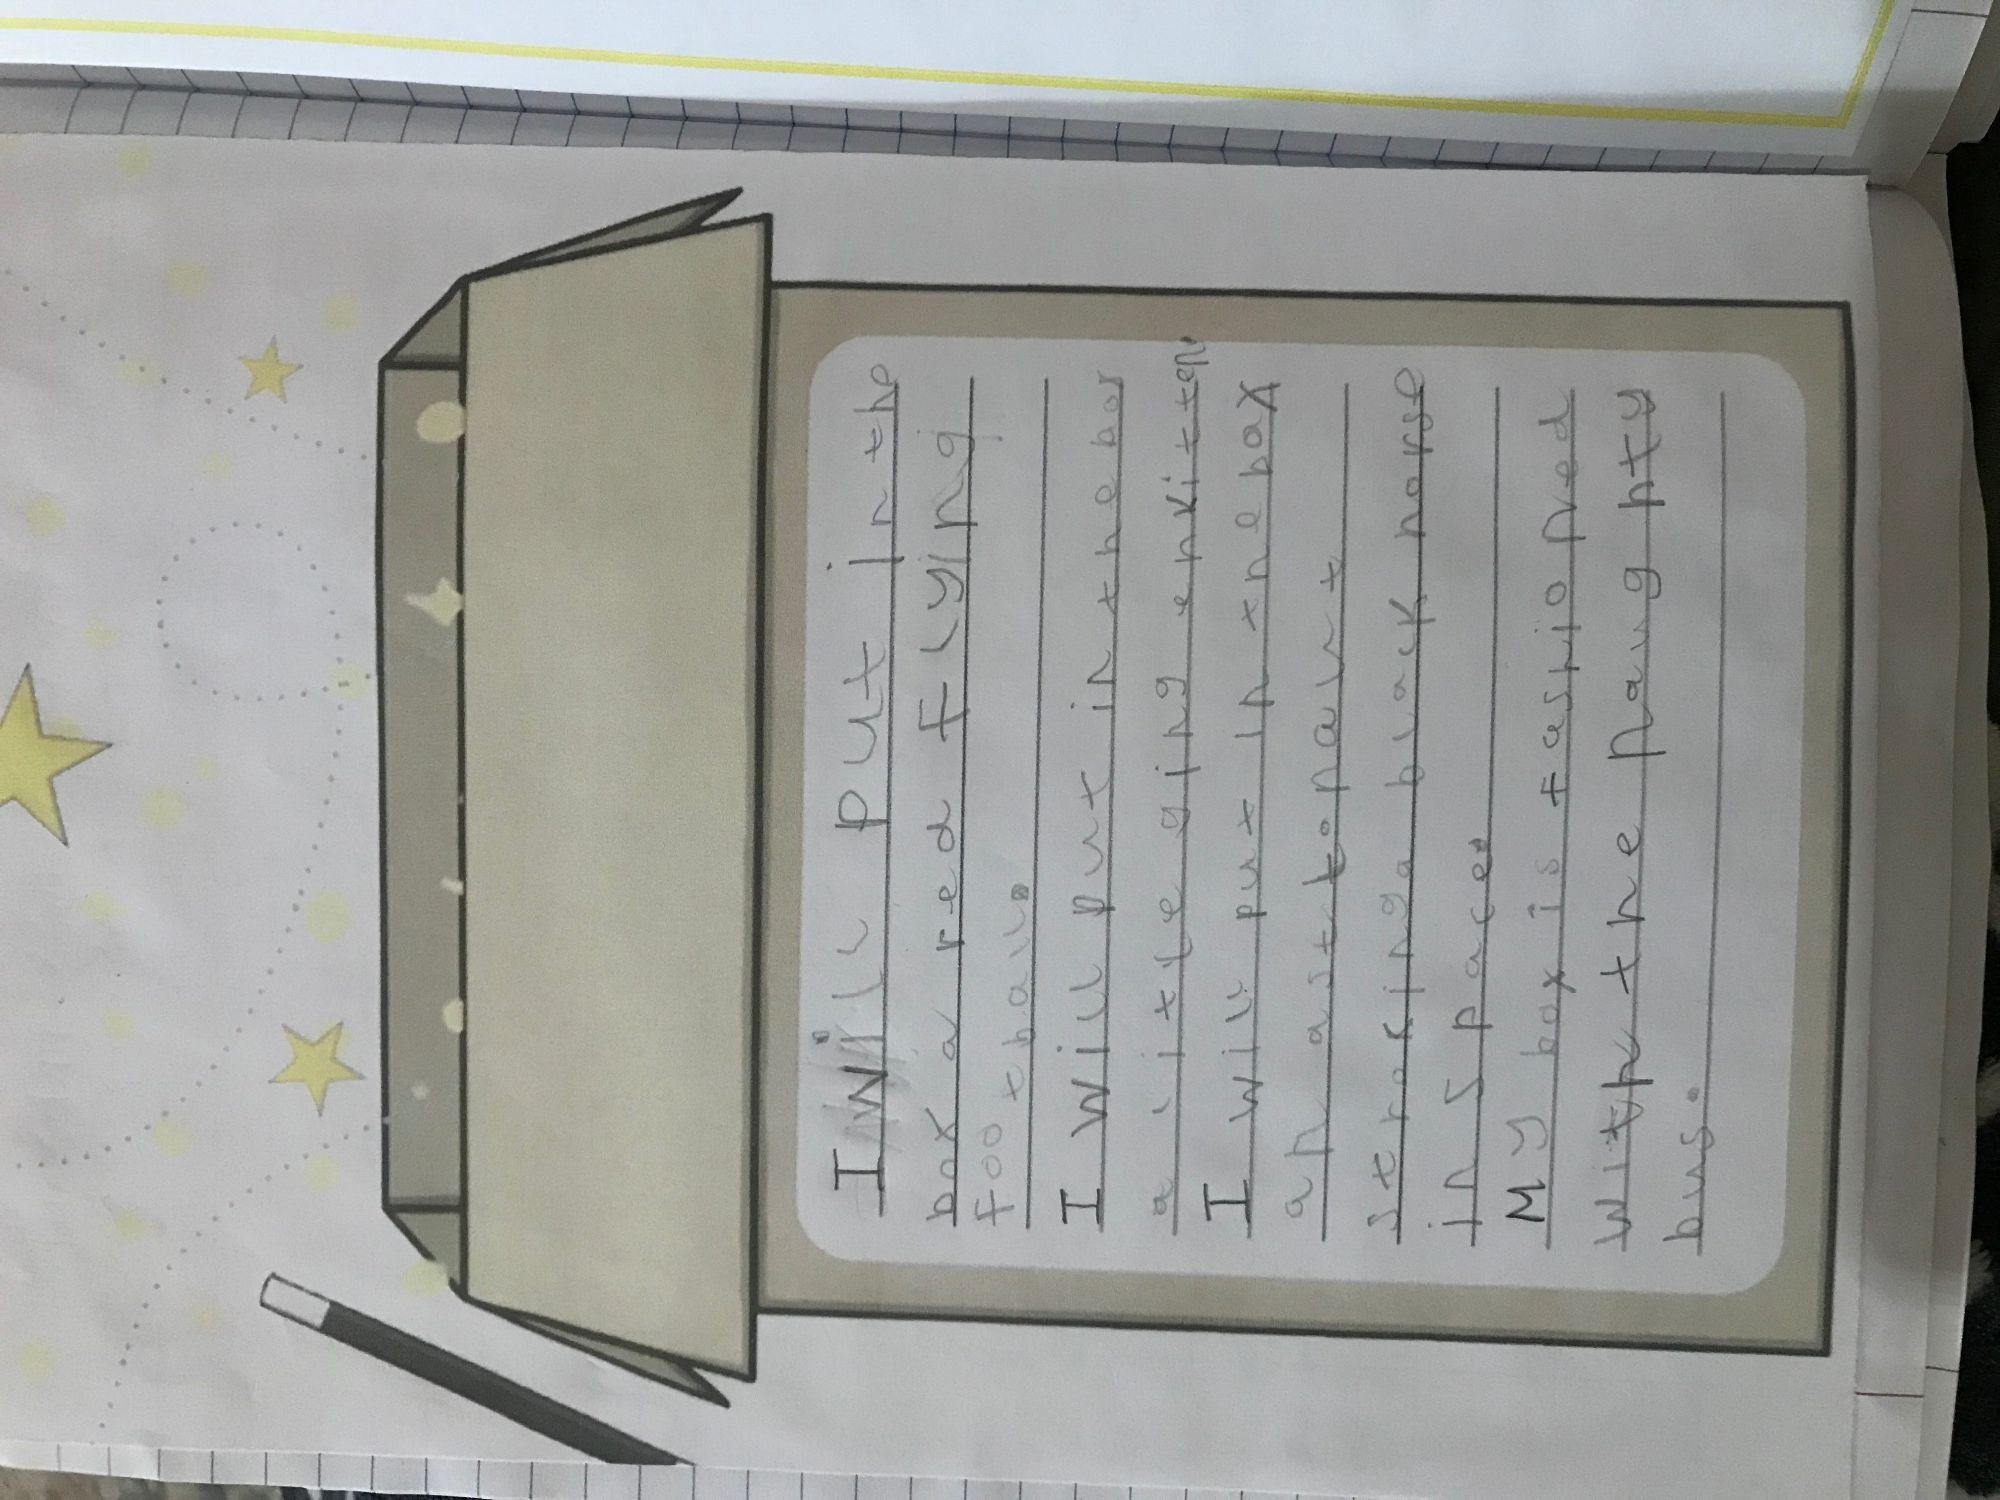 I will put in the
box a red flying
football.
I will put in the box
a little ging erkitten.
I will put in the box
an astto naunt
steroking a black horse
in space.
My box is fashioned
with the naughty
bus.